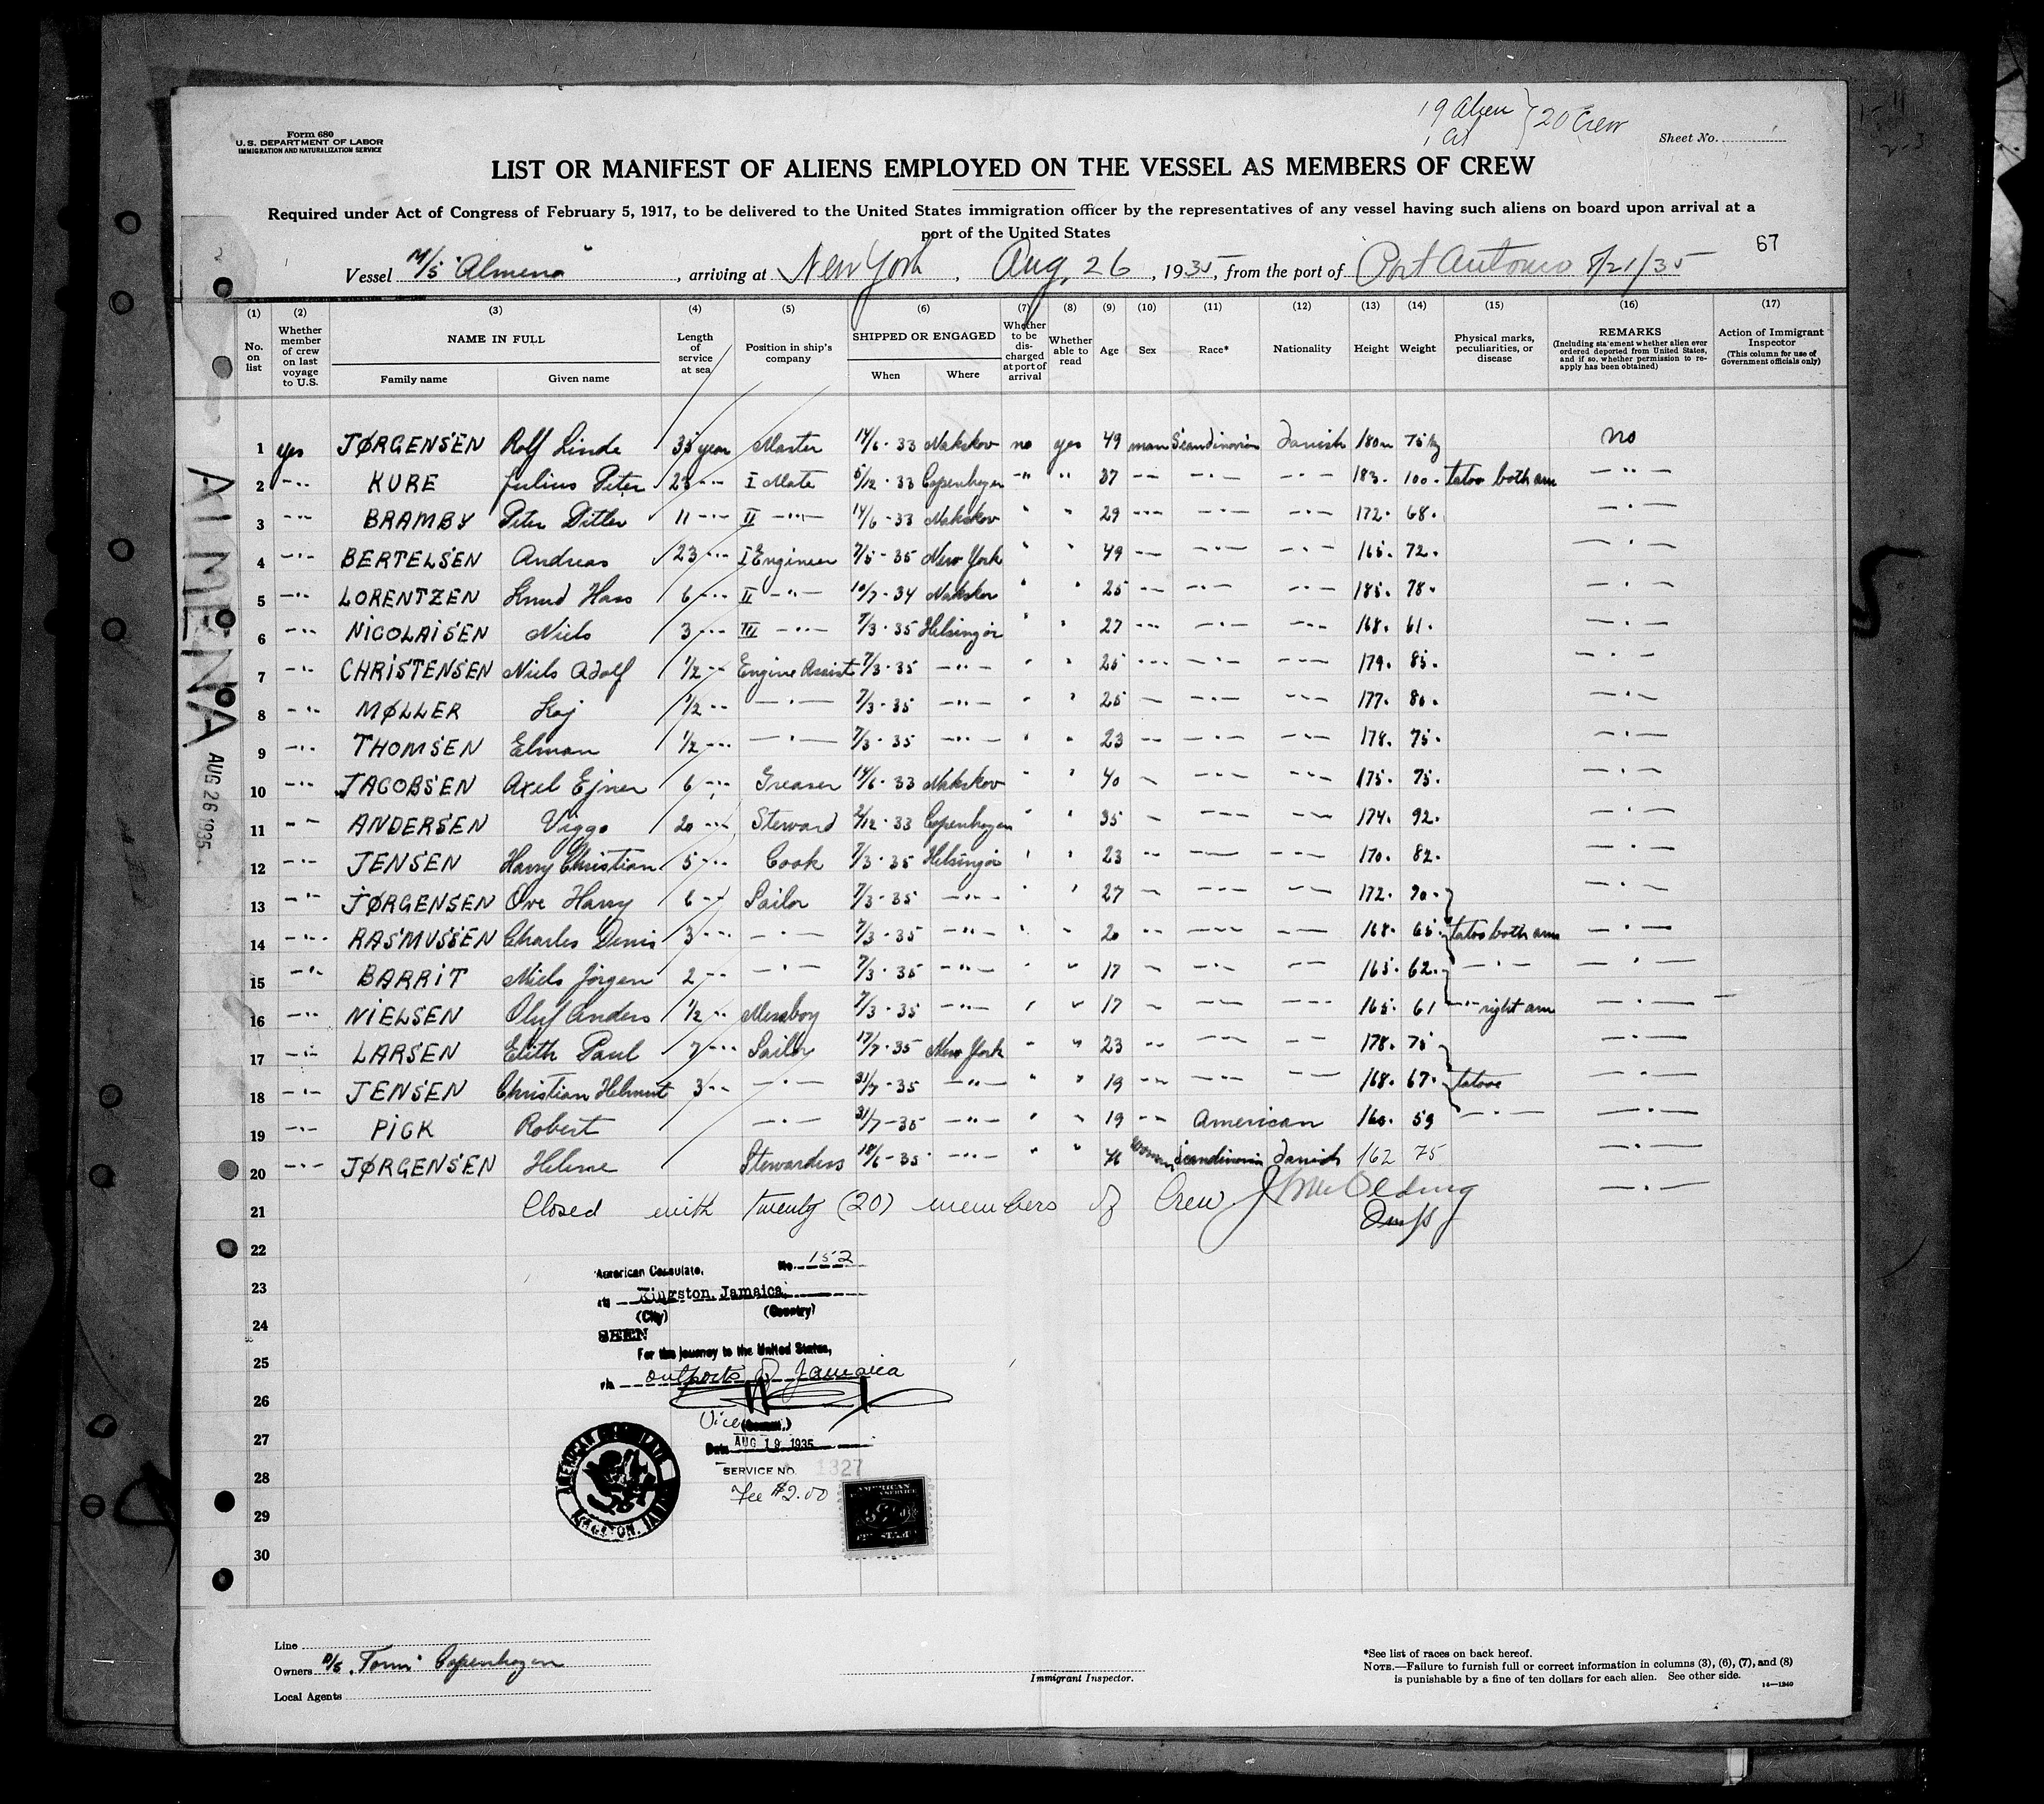 19 Alien } 20 Crew
Form 680
U.S. DEPARTMENT OF LABOR
IMMIGRATION AND NATURALIZATION SERVICE
Sheet No.
LIST OR MANIFEST OF ALIENS EMPLOYED ON THE VESSEL AS MEMBERS OF CREW
Required under Act of Congress of February 5, 1917, to be delivered to the United States immigration officer by the representatives of any vessel having such aliens on board upon arrival at a
port of the United States
67
Vessel M/S "Almena", arriving at New York, Aug 26, 1935, from the port of Port Antonio 8/21/35
(1) (2) (3) (4) (5) (6) (7) (8) (9) (10) (11) (12) (13) (14) (15) (16) (17)
No. on list Whether member of crew on last voyage to U.S. NAME IN FULL Family name Given name Length of service at sea Position in ship's company SHIPPED OR ENGAGED When Where Whether to be discharged at port of arrival Whether able to read Age Sex Race* Nationality Height Weight Physical marks, peculiarities, or disease REMARKS (Including statement whether alien ever ordered deported from United States, and if so, whether permission to reapply has been obtained) Action of Immigrant Inspector (This column for use of Government officials only)
1 yes JØRGENSEN Rolf Linde 35 year Master 14/6-33 Nakskov no yes 49 man Scandinavian Danish 180 m 75 kg no
2 -"- KURE Julius Peter 23 -"- I Mate 5/12-33 Copenhagen -"- " 37 -- -"- -"- 183. 100. tatoo both arm -"-
3 -"- BRAMBY Peter Ditlev 11 -"- II -"- 14/6-33 Nakskov " " 29 -"- -"- -"- 172. 68. -"-
4 -"- BERTELSEN Andreas 23 -"- I Engineer 7/5-35 New York " " 49 -- -"- -"- 165. 72. -"-
5 -"- LORENTZEN Knud Hass 6 -"- II -"- 10/7-34 Nakskov " " 25 -- -"- -"- 185. 78. -"-
6 -"- NICOLAISEN Niels 3 -"- III -"- 7/3-35 Helsingør " " 27 -"- -"- -"- 168. 61. -"-
7 -"- CHRISTENSEN Niels Adolf 1/2 -"- Engine Assist 7/3-35 -"- " " 25 -"- -"- -"- 179. 85. -"-
8 -"- MØLLER Kaj 1/2 -"- -"- 7/3-35 -"- " " 25 - -"- -"- 177. 80. -"-
9 -"- THOMSEN Elman 1/2 -"- -"- 7/3-35 -"- " " 23 -- -"- -"- 178. 75. -"-
10 -"- JACOBSEN Axel Ejner 6 -"- Greaser 14/6-33 Nakskov " " 40 - -"- -"- 175. 75. -"-
11 -"- ANDERSEN Viggo 20 -"- Steward 2/12-33 Copenhagen " " 35 - -"- -"- 174. 92. -"-
12 -"- JENSEN Harry Christian 5 -"- Cook 7/3-35 Helsingør " " 23 -- -"- -"- 170. 82. -"-
13 -"- JØRGENSEN Ove Harry 6 -"- Sailor 7/3-35 -"- " " 27 - -"- -"- 172. 70. -"-
14 -"- RASMUSSEN Charles Denis 3 -"- -"- 7/3-35 -"- " " 20 - -"- -"- 168. 65. tatoo both arm -"-
15 -"- BARRIT Niels Jörgen 2 -"- -"- 7/3-35 -"- " " 17 - -"- -- 165. 62. -"- -"-
16 -"- NIELSEN Oluf Anders 1/2 -"- Messboy 7/3-35 -"- " " 17 - -"- -"- 165. 61 -"- right arm -"-
17 -"- LARSEN Edith Paul 7 -"- Sailor 17/7-35 New York " " 23 -- -"- -"- 178. 75 -"-
18 -"- JENSEN Christian Helmut 3 -"- -"- 31/7-35 -"- " " 19 -- -"- -"- 168. 67. tatooe -"-
19 -"- PICK Robert -"- 31/7-35 -"- " " 19 -- American 160. 59 -"- -"-
20 -"- JØRGENSEN Helene Stewardess 18/6-35 -"- " " 46 woman Scandinavian Danish 162 75 -"-
21 Closed with twenty (20) members of Crew
22
23
24
25
26
27
28
29
30
American Consulate, No. 152
at Kingston, Jamaica,
(City) (Country)
SEEN
For the journey to the United States,
via outports of Jamaica
Vice (Consul.)
Date AUG 19 1935
SERVICE NO. 1327
Fee $2.00
AMERICAN CONSULATE KINGSTON, JAMAICA
ALMENA
AUG 26 1935
Line
Owners D/S "Torm" Copenhagen
Local Agents
Immigrant Inspector.
*See list of races on back hereof.
NOTE.—Failure to furnish full or correct information in columns (3), (6), (7), and (8)
is punishable by a fine of ten dollars for each alien. See other side.
14—1240